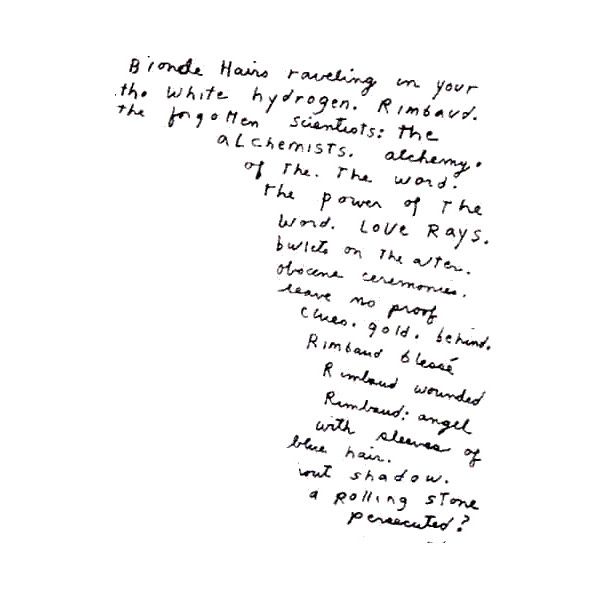 Blonde Hairs raveling in your
the white hydrogen. Rimbaud.
the forgotten scientists: the
alchemists. alchemy.
of The. The word.
the power of The
word. LOVE RAYS.
bullets on the alter.
obscene ceremonies.
leave no proof
clues. gold. behind.
Rimbaud blessé
Rimbaud wounded
Rimbaud: angel
with sleeves of
blue hair.
out shadow.
a Rolling STone
persecuted?